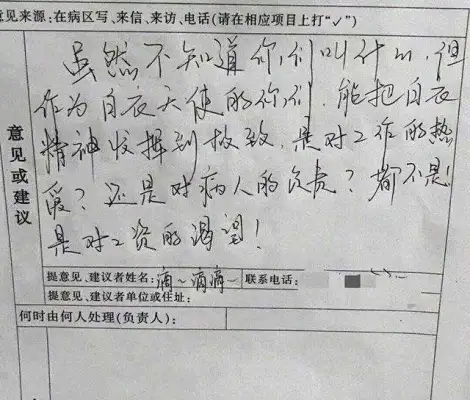 意见来源:在病区写、来信、来访、电话(请在相应项目上打"✓")
意见或建议
虽然不知道你们叫什么,但
作为白衣天使的你们,能把白衣
精神发挥到极致,是对工作的热
爱?还是对病人的负责?都不是!
是对工资的渴望!
提意见、建议者姓名:滴~滴滴~ 联系电话:
提意见、建议者单位或住址:
何时由何人处理(负责人):